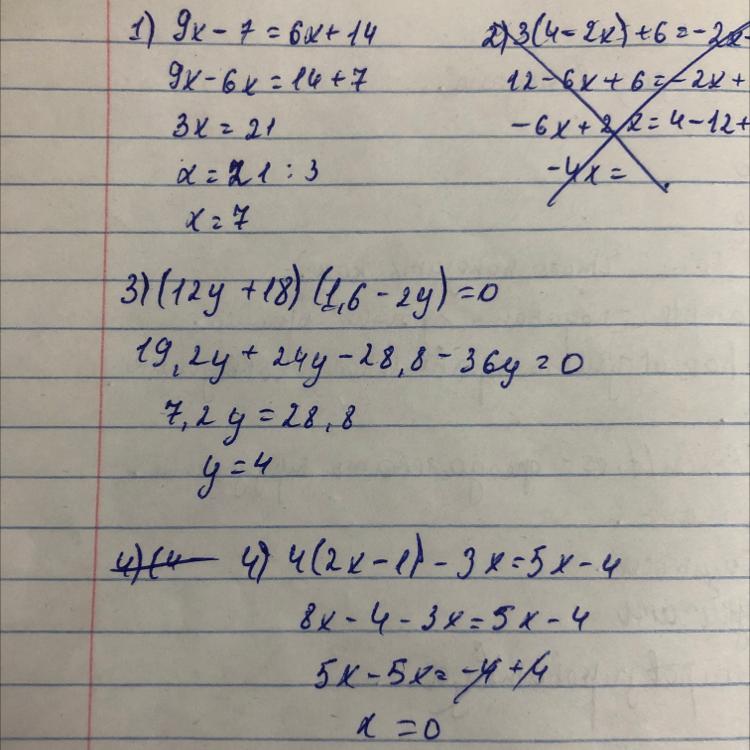 1) 9x - 7 = 6x + 14
9x - 6x = 14 + 7
3x = 21
x = 21 : 3
x = 7
2) 3(4 - 2x) + 6 = -2x
12 - 6x + 6 = -2x +
-6x + 2x = 4 - 12 +
-4x =
3) (12y + 18) (1,6 - 2y) = 0
19,2y + 24y - 28,8 - 36y = 0
7,2y = 28,8
y = 4
4) (4 4) 4(2x - 1) - 3x = 5x - 4
8x - 4 - 3x = 5x - 4
5x - 5x = -4 + 4
x = 0